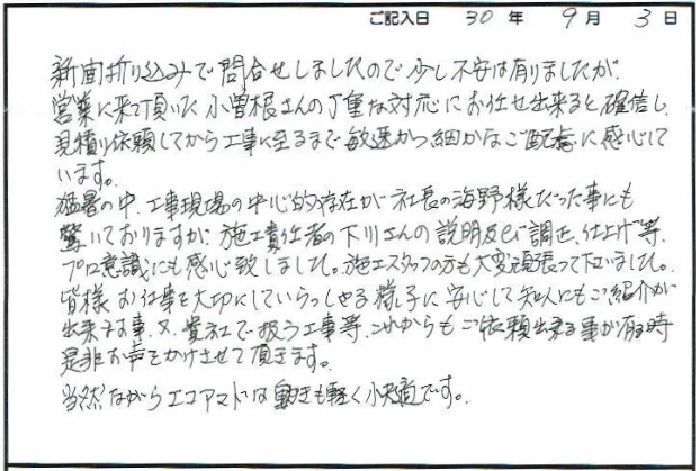 ご記入日 30 年 9 月 3 日
新聞折り込みで問合せしましたので少し不安は有りましたが、
営業に来て頂いた小曽根さんの丁重な対応にお任せ出来ると確信し、
見積り依頼してから工事に至るまで敏速かつ細かなご配慮に感心して
います。
猛暑の中、工事現場の中心的存在が社長の海野様だった事にも
驚いておりますが、施工責任者の下川さんの説明及び調整、仕上げ等、
プロ意識にも感心致しました。施工スタッフの方も大変頑張って下さいました。
皆様お仕事を大切にしていらっしゃる様子に安心して知人にもご紹介が
出来ます事、又、貴社で扱う工事等、これからもご依頼出来る事が有る時
是非お声をかけさせて頂きます。
当然ながらエコアマドは動きも軽く快適です。